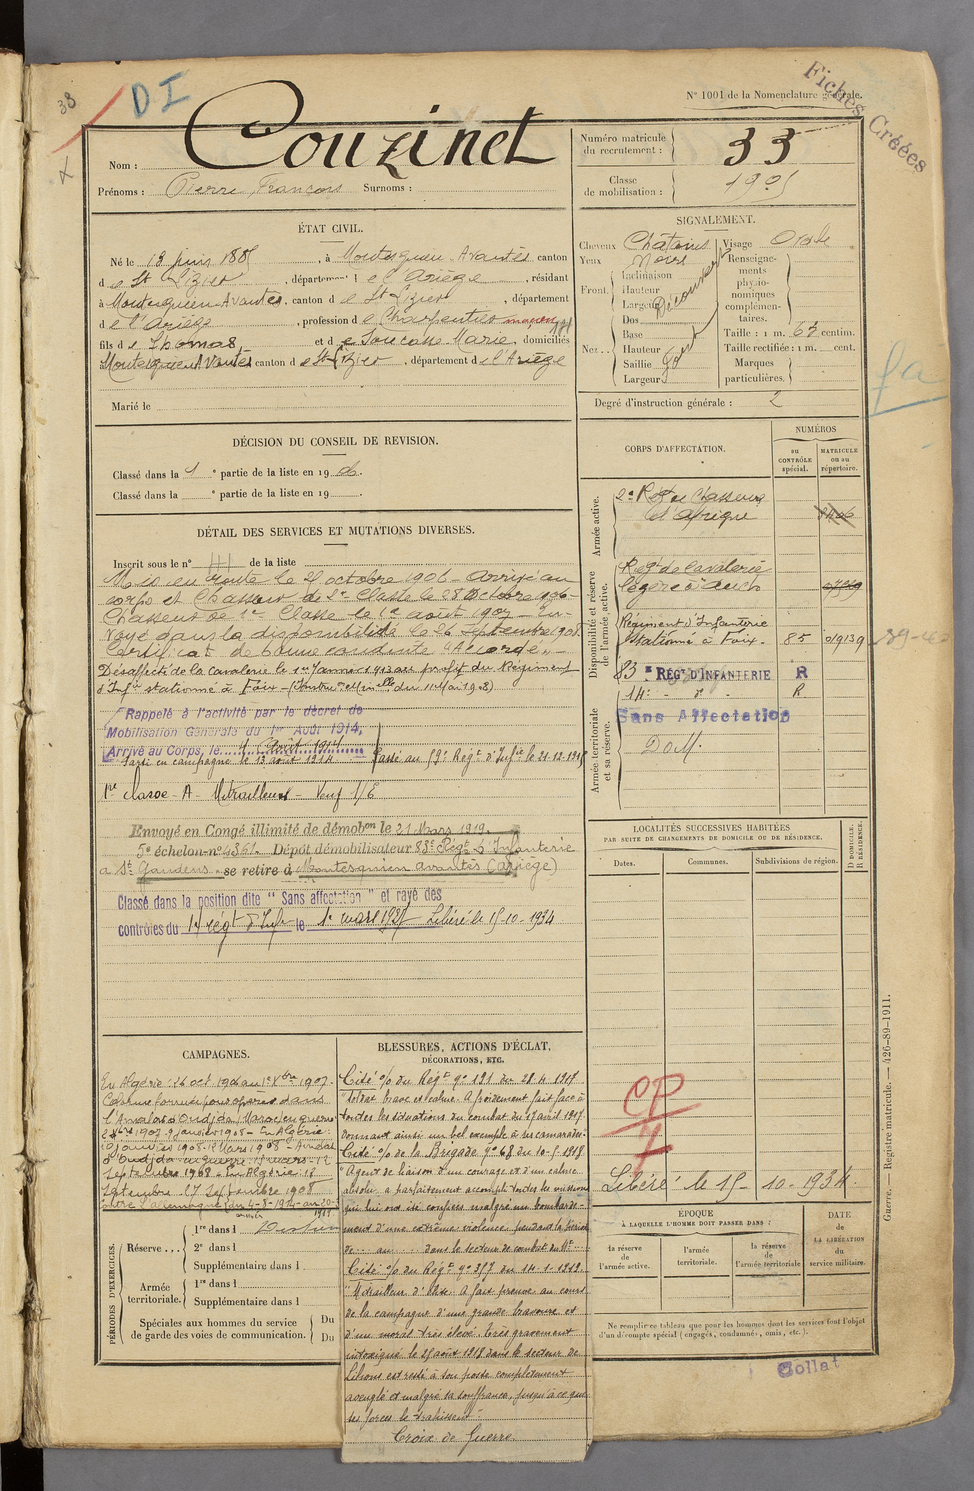 38
DI
N° 1001 de la Nomenclature générale.
Fiches Créées
Nom : Couzinet
Prénoms : Pierre, François Surnoms :
Numéro matricule du recrutement : 33
Classe de mobilisation : 1905
ÉTAT CIVIL.
Né le 13 juin 1885, à Montesquieu-Avantès canton
de St Lizier, département de l'Ariège, résidant
à Montesquieu-Avantès, canton de St Lizier, département
de l'Ariège, profession de Charpentier maçon
fils de Thomas, et de Soucasse Marie, domiciliés
Montesquieu Avantès canton de St Lizier, département de l'Ariège
Marié le
SIGNALEMENT.
Cheveux Châtains Visage Ovale
Yeux Noirs
Front. Inclinaison
Hauteur
Largeur
Découvert
Nez. Dos
Base
Hauteur
Saillie
Largeur
Fort
Renseignements physionomiques complémentaires.
Taille : 1 m. 67 centim.
Taille rectifiée : 1 m. cent.
Marques particulières.
Degré d'instruction générale : 2
DÉCISION DU CONSEIL DE REVISION.
Classé dans la 1e partie de la liste en 1906.
Classé dans la e partie de la liste en 19 .
DÉTAIL DES SERVICES ET MUTATIONS DIVERSES.
Inscrit sous le n° 111 de la liste
Mis en route le octobre 1906 - Arrivé au
corps et Chasseur de 2e Classe le 28 Octobre 1906 -
Chasseur de 1re Classe le 1er août 1907 - En-
voyé dans la disponibilité le 26 Septembre 1908.
Certificat de bonne conduite "Accordé" -
Désaffecté de la cavalerie le 1er Janvier 1913 au profit du Régiment
d'Infie stationné à Foix -
Rappelé à l'activité par le décret de
Mobilisation Générale du 1er Août 1914,
Arrivé au Corps, le 4 Août 1914
Parti en campagne le 13 août 1914 Passé au Régt d'Infie le 21-12-1915
1re classe - A - Mitrailleur -
Envoyé en Congé illimité de démobon le 21 Mars 1919.
5e échelon - n° 4361. Dépôt démobilisateur 83e Régt d'Infanterie
à St Gaudens - se retire à Montesquieu avantès (Ariège)
Classé dans la position dite " Sans affectation " et rayé des
contrôles du régt d'Infie le 1er mars 1927 Libéré le 15-10-1934
CORPS D'AFFECTATION.
NUMÉROS
au CONTRÔLE spécial.
MATRICULE ou au répertoire.
Armée active.
2e Régt de Chasseurs
d'Afrique
Disponibilité et réserve de l'armée active.
Régt de Cavalerie
légère à Auch
Régiment d'Infanterie
Stationné à Foix. 85 0/9139
83e RÉGt D'INFANTERIE R
14e - d° - R
Sans Affectation
Dom.
Armée territoriale et sa réserve.
LOCALITÉS SUCCESSIVES HABITÉES
PAR SUITE DE CHANGEMENTS DE DOMICILE OU DE RÉSIDENCE.
Dates.
Communes.
Subdivisions de région.
D DOMICILE.
R RÉSIDENCE.
CAMPAGNES.
En Algérie : 26 oct 1906 au 1er Xbre 1907.
Colonne formée pour opérer dans
l'Amalat d'Oudjda (Maroc) en guerre
2 Xbre 1907 9 janvier 1908 - En Algérie :
10 janvier 1908 - 12 Mars 1908 - Amalat
d'Oudjda en guerre 13 mars - 12
Septembre 1908 - En Algérie : 13
Septembre - 27 Septembre 1908
Contre l'Allemagne du 4-8-1914 au 20-3-1919
BLESSURES, ACTIONS D'ÉCLAT,
DÉCORATIONS, ETC.
Cité o/o du Régt n° 191 du 28-4-1917
"Soldat brave et calme. A froidement fait face à
toutes les situations du combat du 17 avril 1917.
donnant ainsi un bel exemple à ses camarades."
Cité o/o de la Brigade n° 68 du 10-5-1918
"Agent de liaison d'un courage et d'un calme
absolu, a parfaitement accompli toutes les missions
qui lui ont été confiées malgré un bombarde-
ment d'une extrême violence pendant la période
de ... au ... dans le secteur de combat du Mt ...
Cité o/o du Régt n° 357 du 14-1-1919
"Mitrailleur d'élite. A fait preuve au cours
de la campagne d'une grande bravoure et
d'un moral très élevé. Très gravement
intoxiqué le 25 août 1918 dans le secteur de
Lihons est resté à son poste complètement
aveuglé et malgré sa souffrance, jusqu'à ce que
ses forces le trahissent".
Croix de Guerre
PÉRIODES D'EXERCICES.
Réserve ... 1re dans l
2e dans l
Supplémentaire dans l
Armée territoriale. 1re dans l
Supplémentaire dans l
Spéciales aux hommes du service de garde des voies de communication. Du
Du
CP
7
Libéré le 15-10-1934.
ÉPOQUE
À LAQUELLE L'HOMME DOIT PASSER DANS :
la réserve de l'armée active.
l'armée territoriale.
la réserve de l'armée territoriale
DATE de LA LIBÉRATION du service militaire.
Ne remplir ce tableau que pour les hommes dont les services font l'objet d'un décompte spécial (engagés, condamnés, omis, etc.).
Collat
Guerre. — Registre matricule. — 426-89-1911.